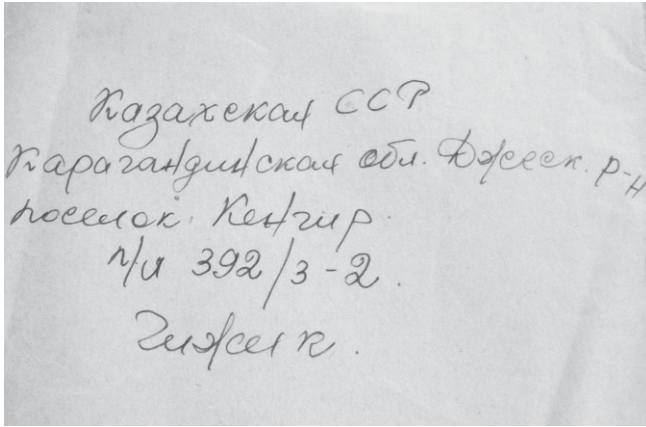 Казахская ССР
Карагандинская обл. Джезк. р-н
поселок. Кенгир.
п/я 392/3-2.
Чижик.